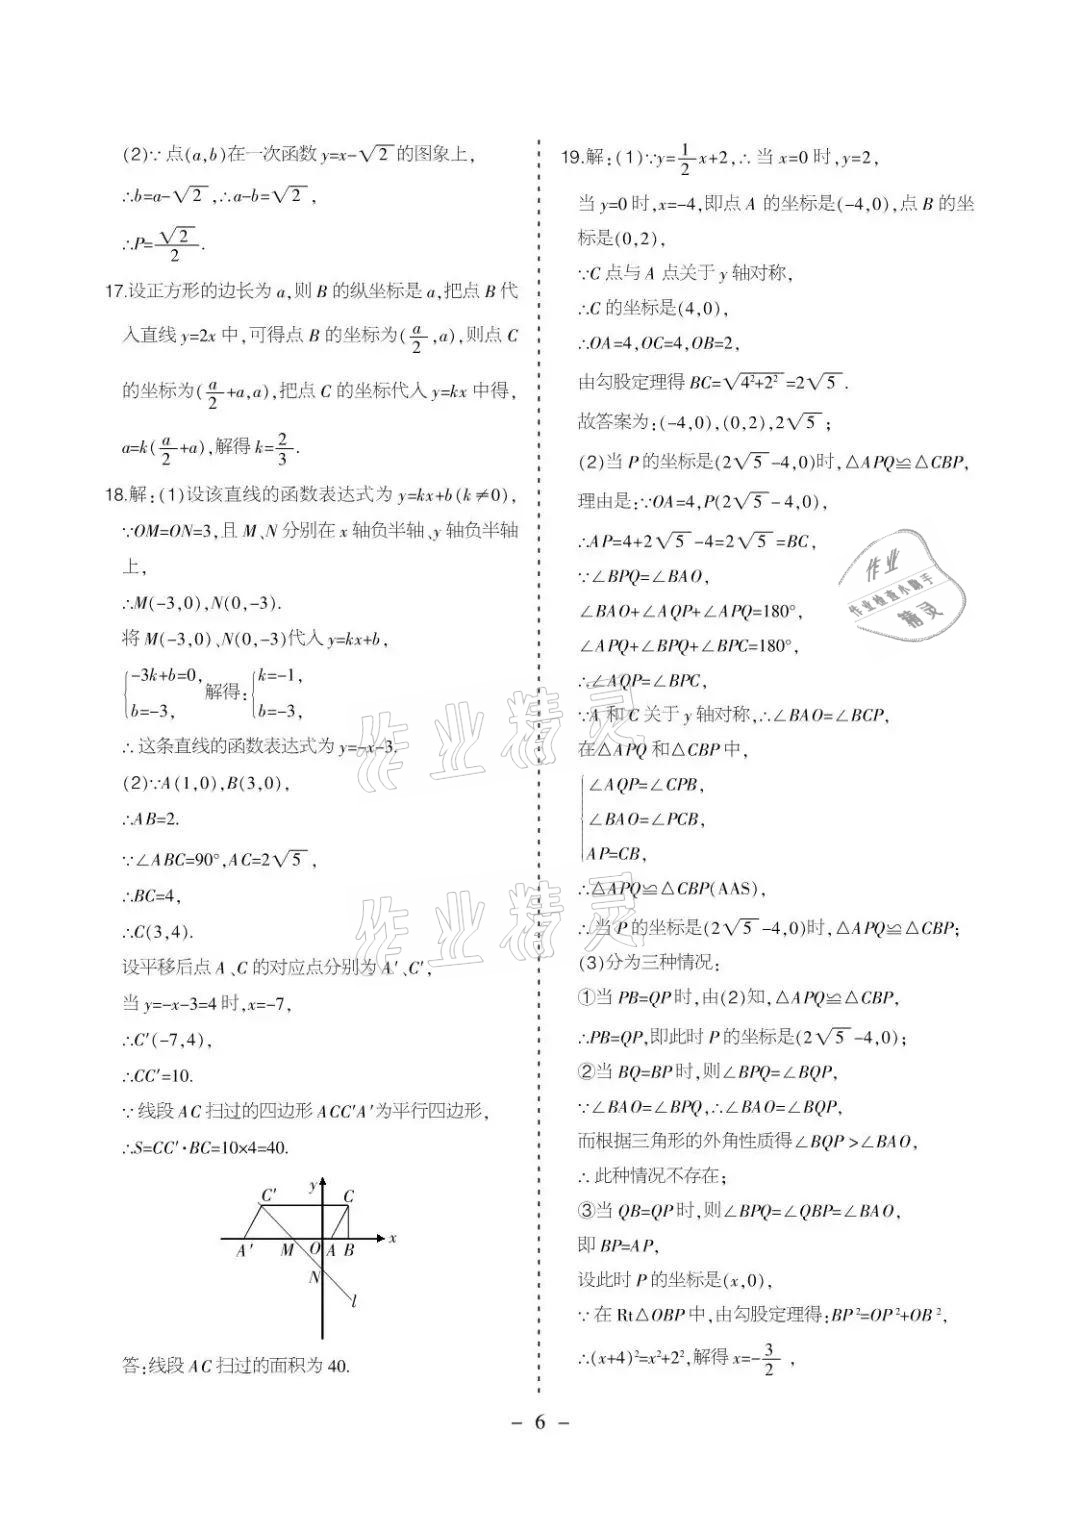 (2)∵点(a,b)在一次函数y=x-√2的图象上,
∴b=a-√2,∴a-b=√2,
∴P=√2/2.
17.设正方形的边长为a,则B的纵坐标是a,把点B代
入直线y=2x中,可得点B的坐标为(a/2,a),则点C
的坐标为(a/2+a,a),把点C的坐标代入y=kx中得,
a=k(a/2+a),解得k=2/3.
18.解:(1)设该直线的函数表达式为y=kx+b(k≠0),
∵OM=ON=3,且M、N分别在x轴负半轴、y轴负半轴
上,
∴M(-3,0),N(0,-3).
将M(-3,0)、N(0,-3)代入y=kx+b,
{-3k+b=0, 解得:{k=-1,
b=-3, b=-3,
∴这条直线的函数表达式为y=-x-3.
(2)∵A(1,0),B(3,0),
∴AB=2.
∵∠ABC=90°,AC=2√5,
∴BC=4,
∴C(3,4).
设平移后点A、C的对应点分别为A′、C′,
当y=-x-3=4时,x=-7,
∴C′(-7,4),
∴CC′=10.
∵线段AC扫过的四边形ACC′A′为平行四边形,
∴S=CC′·BC=10×4=40.
y
C′ C
A′ M O A B x
N
l
答:线段AC扫过的面积为40.
19.解:(1)∵y=1/2x+2,∴当x=0时,y=2,
当y=0时,x=-4,即点A的坐标是(-4,0),点B的坐
标是(0,2),
∵C点与A点关于y轴对称,
∴C的坐标是(4,0),
∴OA=4,OC=4,OB=2,
由勾股定理得BC=√4²+2²=2√5.
故答案为:(-4,0),(0,2),2√5;
(2)当P的坐标是(2√5-4,0)时,△APQ≌△CBP,
理由是:∵OA=4,P(2√5-4,0),
∴AP=4+2√5-4=2√5=BC,
∵∠BPQ=∠BAO,
∠BAO+∠AQP+∠APQ=180°,
∠APQ+∠BPQ+∠BPC=180°,
∴∠AQP=∠BPC,
∵A和C关于y轴对称,∴∠BAO=∠BCP,
在△APQ和△CBP中,
∠AQP=∠CPB,
∠BAO=∠PCB,
AP=CB,
∴△APQ≌△CBP(AAS),
∴当P的坐标是(2√5-4,0)时,△APQ≌△CBP;
(3)分为三种情况:
①当PB=QP时,由(2)知,△APQ≌△CBP,
∴PB=QP,即此时P的坐标是(2√5-4,0);
②当BQ=BP时,则∠BPQ=∠BQP,
∵∠BAO=∠BPQ,∴∠BAO=∠BQP,
而根据三角形的外角性质得∠BQP>∠BAO,
∴此种情况不存在;
③当QB=QP时,则∠BPQ=∠QBP=∠BAO,
即BP=AP,
设此时P的坐标是(x,0),
∵在Rt△OBP中,由勾股定理得:BP²=OP²+OB²,
∴(x+4)²=x²+2²,解得x=-3/2,
作业
作业检查小助手
精灵
作业精灵
作业精灵
- 6 -